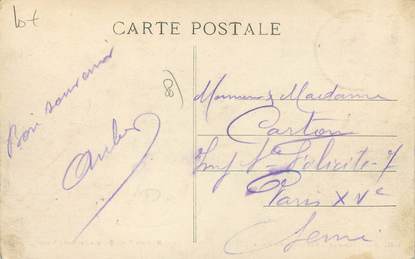 lot
CARTE POSTALE
(80)
Bon souvenir
Monsieur & Madame
Carton
Imp Ste Félicité 7
Paris XVe